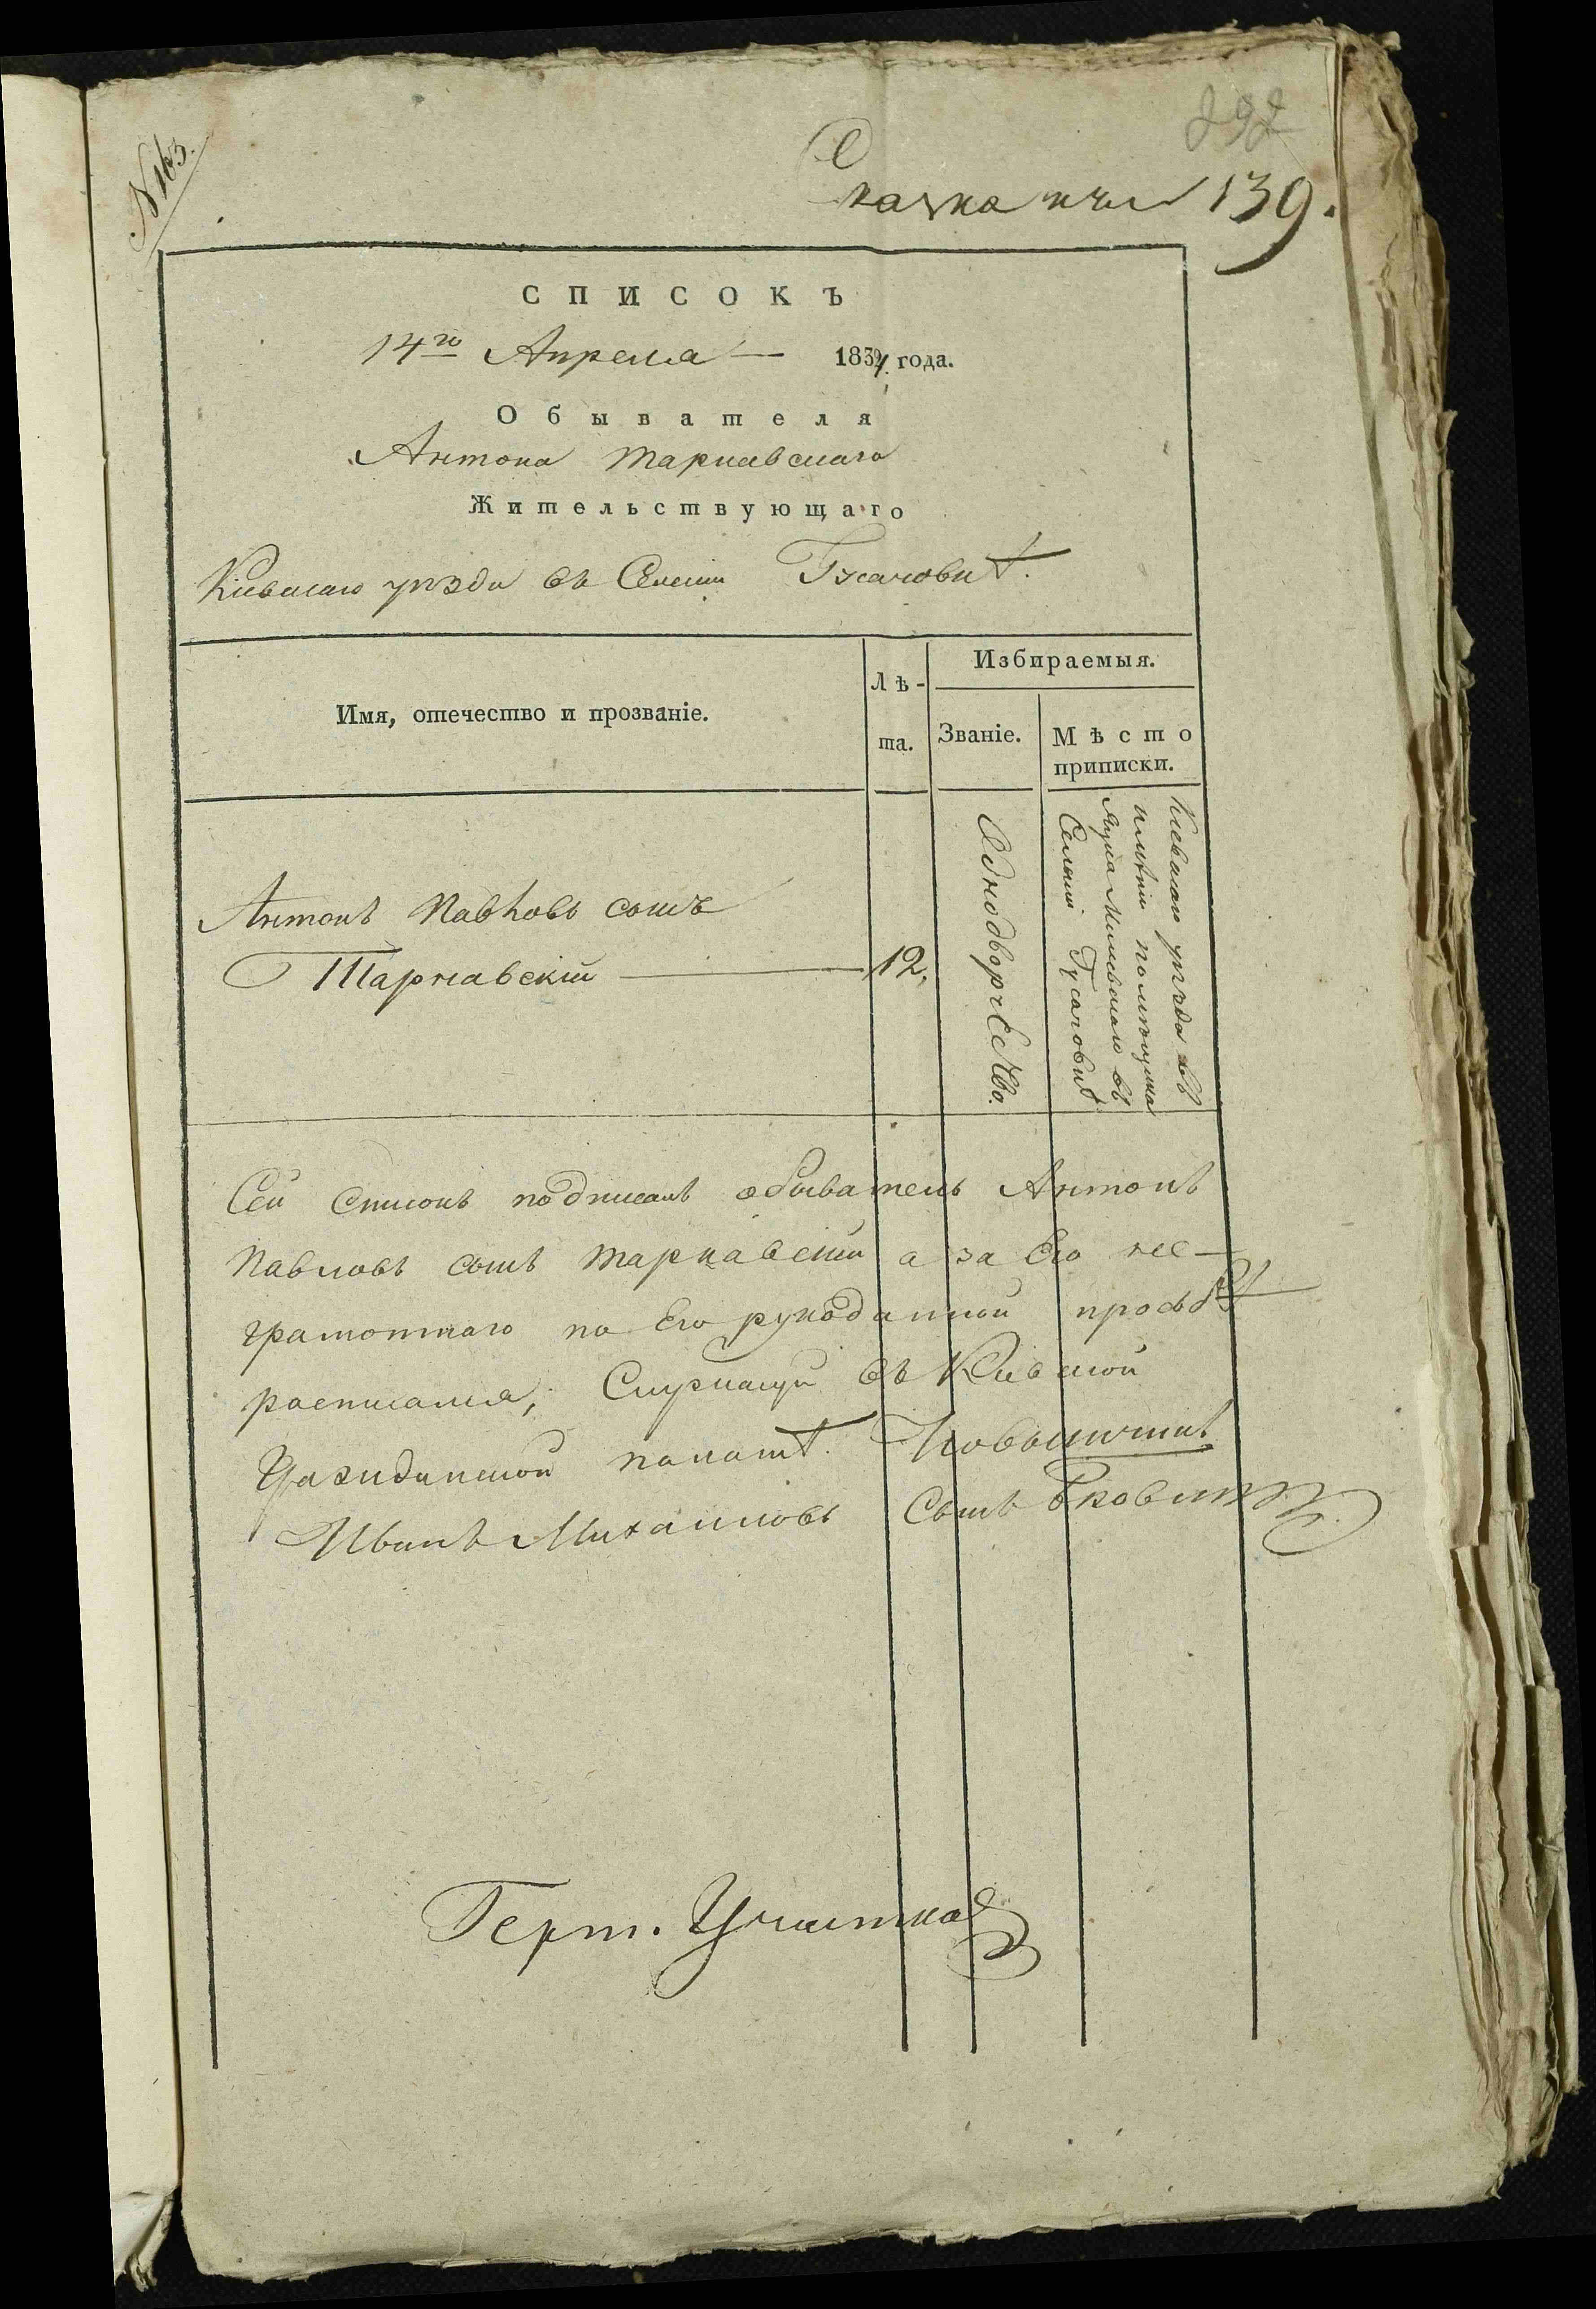 N 163.
292
Сказка
139.
СПИСОКЪ
14го Апреля — 1834 года.
Обывателя
Антона Тарнавскаго
Жительствующаго
Киевскаго уезда въ Селении Гусачовкѣ.
Имя, отечество и прозваніе.
Лѣта.
Избираемыя.
Званіе.
Мѣсто приписки.
Антонъ Павловъ сынъ
Тарнавскій — 12.
Однодворчество.
Киевскаго уезда въ
имѣнии помещика
въ
Селении Гусачовкѣ
Сей Списокъ подписалъ обыватель Антонъ
Павловъ сынъ Тарнавский а за Его не-
грамотнаго по Его рукоданной просьбѣ
росписался, Служащий въ Киевской
Гражданской палатѣ.
Иванъ Михайловъ Сынъ
Герт.